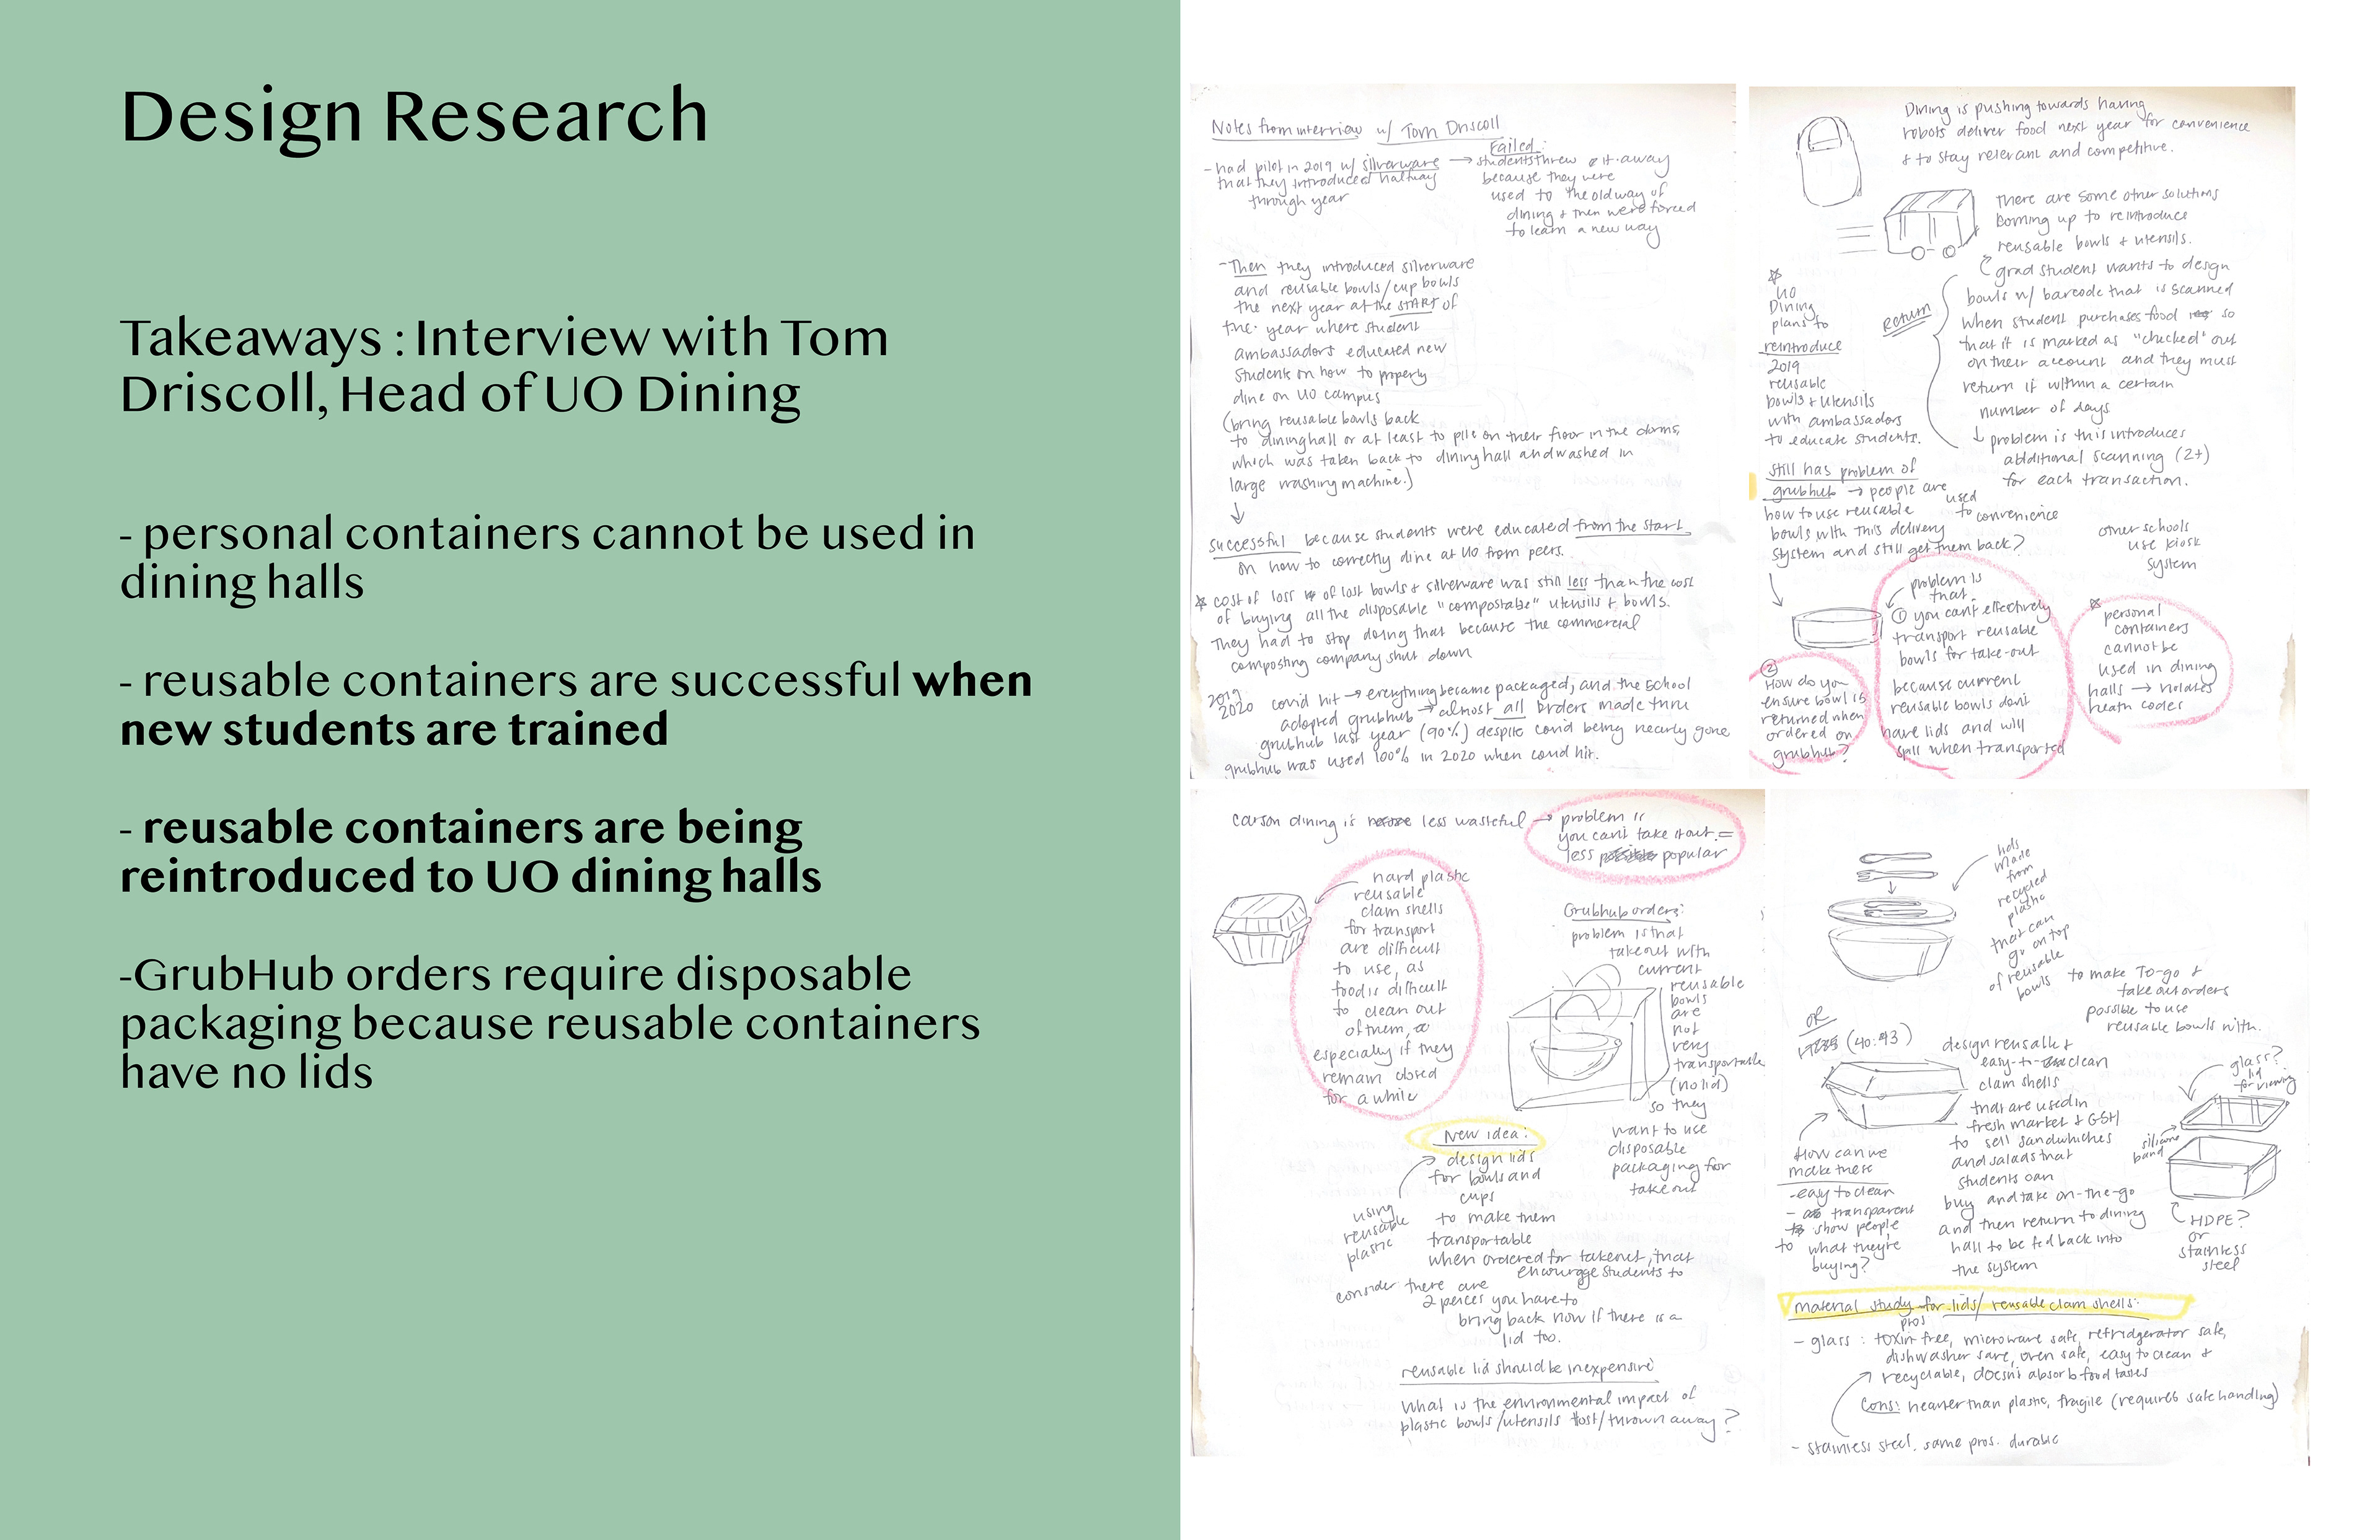 Design Research
Takeaways : Interview with Tom
Driscoll, Head of UO Dining
- personal containers cannot be used in
dining halls
- reusable containers are successful when
new students are trained
- reusable containers are being
reintroduced to UO dining halls
-GrubHub orders require disposable
packaging because reusable containers
have no lids
Notes from interview w/ Tom Driscoll
- had pilot in 2019 w/ silverware →
that they introduced halfway
through year
Failed:
students threw it away
because they were
used to the old way of
dining & then were forced
to learn a new way
- Then they introduced silverware
and reusable bowls/cup bowls
the next year at the START of
the year where student
ambassadors educated new
students on how to properly
dine on UO campus
(bring reusable bowls back
to dining hall or at least to pile on their floor in the dorms,
which was taken back to dining hall and washed in
large washing machine.)
↓
successful because students were educated from the start
on how to correctly dine at UO from peers.
☆ cost of loss of lost bowls & silverware was still less than the cost
of buying all the disposable "compostable" utensils & bowls.
They had to stop doing that because the commercial
composting company shut down
2019
2020
covid hit → everything became packaged, and the school
adopted grubhub → almost all orders made thru
grubhub last year (90%) despite covid being nearly gone
grubhub was used 100% in 2020 when covid hit.
Dining is pushing towards having
robots deliver food next year for convenience
& to stay relevant and competitive.
there are some other solutions
coming up to reintroduce
reusable bowls & utensils.
grad student wants to design
bowls w/ barcode that is scanned
when student purchases food so
that it is marked as "checked" out
on their account and they must
return it within a certain
number of days
return
↓ problem is this introduces
additional scanning (2+)
for each transaction.
☆
UO
Dining
plans to
reintroduce
2019
reusable
bowls & utensils
with ambassadors
to educate students.
still has problem of
grubhub → people are used
to convenience
how to use reusable
bowls with this delivery
system and still get them back?
other schools
use kiosk
system
problem is
that
① you can't effectively
transport reusable
bowls for take-out
because current
reusable bowls don't
have lids and will
spill when transported
② How do you
ensure bowl is
returned when
ordered on
grubhub?
☆ personal
containers
cannot be
used in dining
halls → violates
heath codes
carson dining is less wasteful →
problem is
you can't take it out =
less popular
hard plastic
reusable
clam shells
for transport
are difficult
to use, as
food is difficult
to clean out
of them,
especially if they
remain closed
for a while
Grubhub orders:
problem is that
takeout with
current
reusable
bowls
are
not
very
transportable
(no lid)
so they
want to use
disposable
packaging for
takeout
New idea:
design lids
for bowls and
cups
to make them
transportable
when ordered for takeout, that
encourage students to
using
reusable
plastic
consider there are
2 pieces you have to
bring back now if there is a
lid too.
reusable lid should be inexpensive
What is the environmental impact of
plastic bowls/utensils lost/thrown away?
lids
made
from
recycled
plastic
that can
go on top
of reusable
bowls
to make To-go &
takeout orders
possible to use
reusable bowls with.
OR
(40:43)
design reusable &
easy-to-clean
clam shells
that are used in
fresh market & GSH
to sell sandwhiches
and salads that
students can
buy and take on-the-go
and then return to dining
hall to be fed back into
the system
How can we
make these
- easy to clean
- transparent
to show people
what they're
buying?
glass?
lid
for viewing
silicone
band
HDPE?
or
stainless
steel
material study for lids/ reusable clam shells:
pros
- glass : toxin free, microwave safe, refridgerator safe,
dishwasher safe, oven safe, easy to clean &
recyclable, doesn't absorb food tastes
Cons: heavier than plastic, fragile (requires safe handling)
- stainless steel. same pros. durable